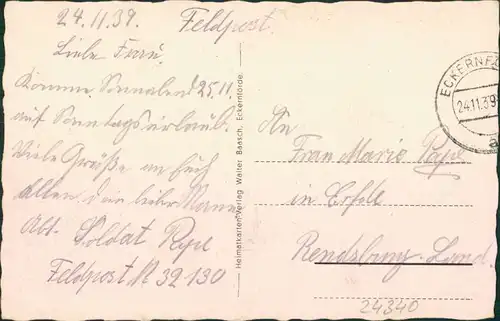 24.11.39.
Feldpost.
Liebe Frau.
Komme Sonnabend 25.11.
auf Sonntagsurlaub.
Viele Grüße an Euch
Allen dein lieber Mann
Abs. Soldat Rape
Feldpost № 32130
Heimatkarten-Verlag Walter Baasch, Eckernförde.
ECKERNFÖ
24.11.39
a
An
Frau Marie Rape
in
Rendsburg-Land.
24340